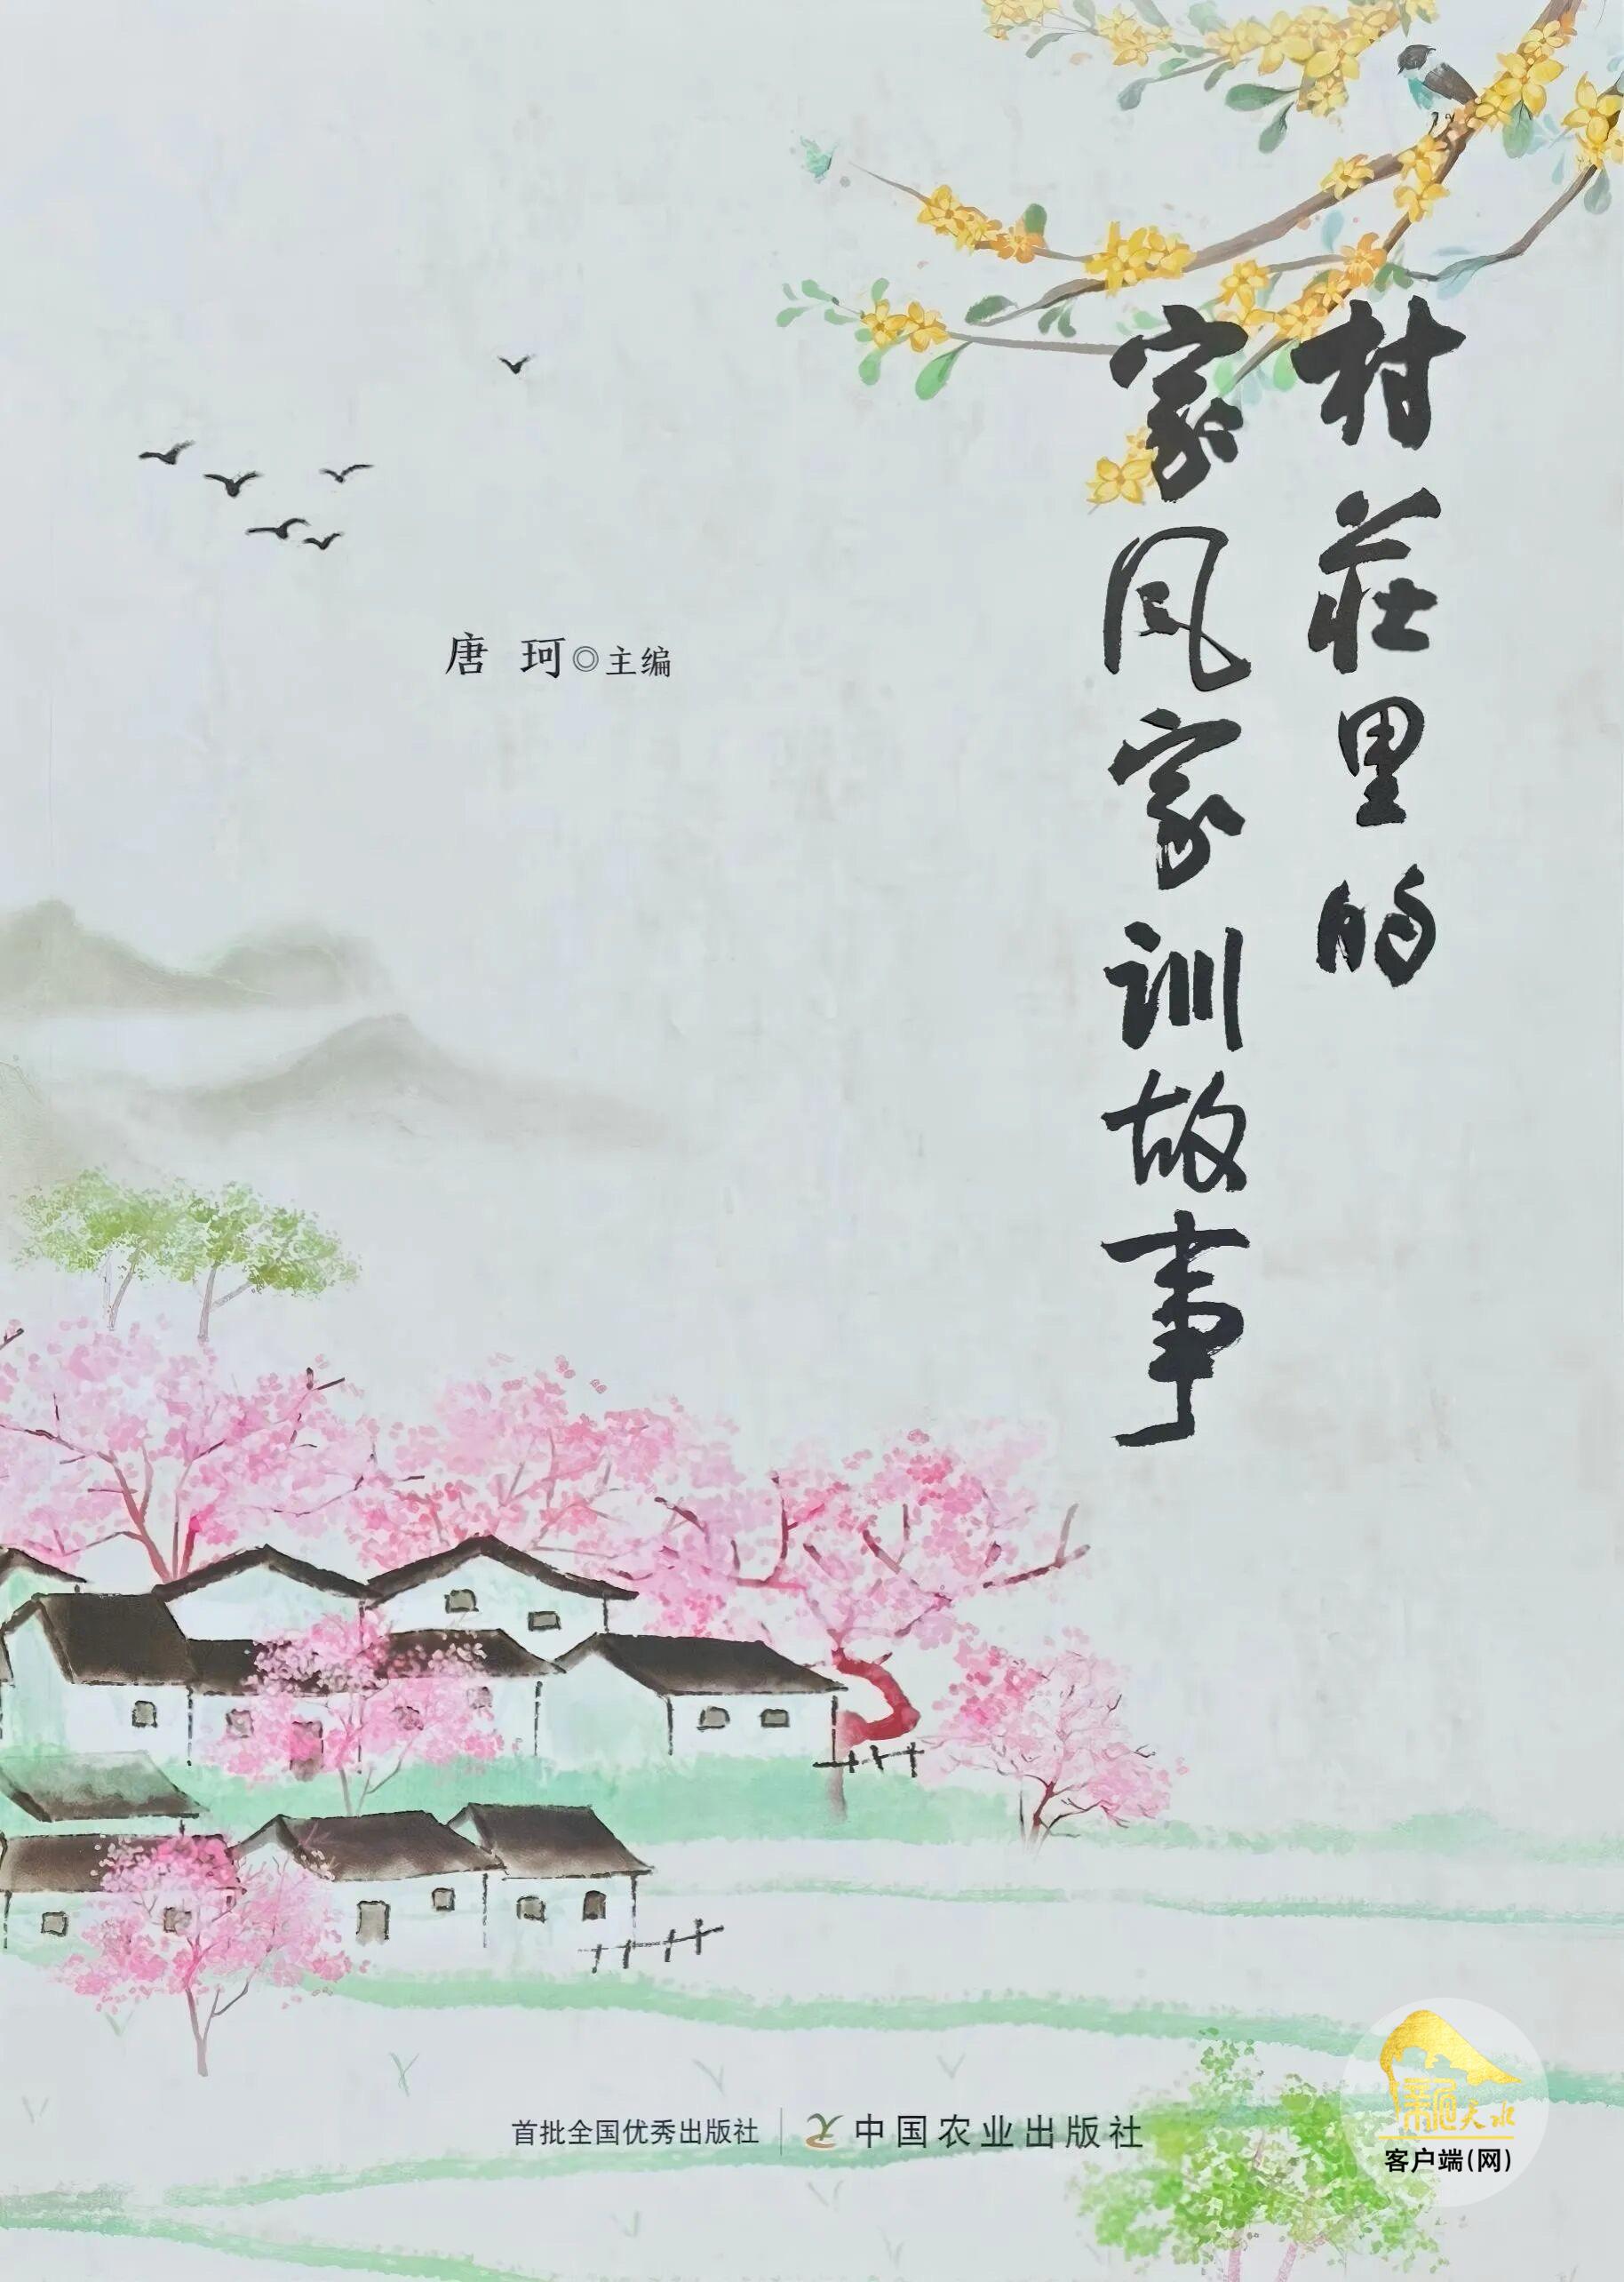 村莊里的
家风家训故事
唐 珂◎主编
首批全国优秀出版社
中国农业出版社
天水
客户端(网)